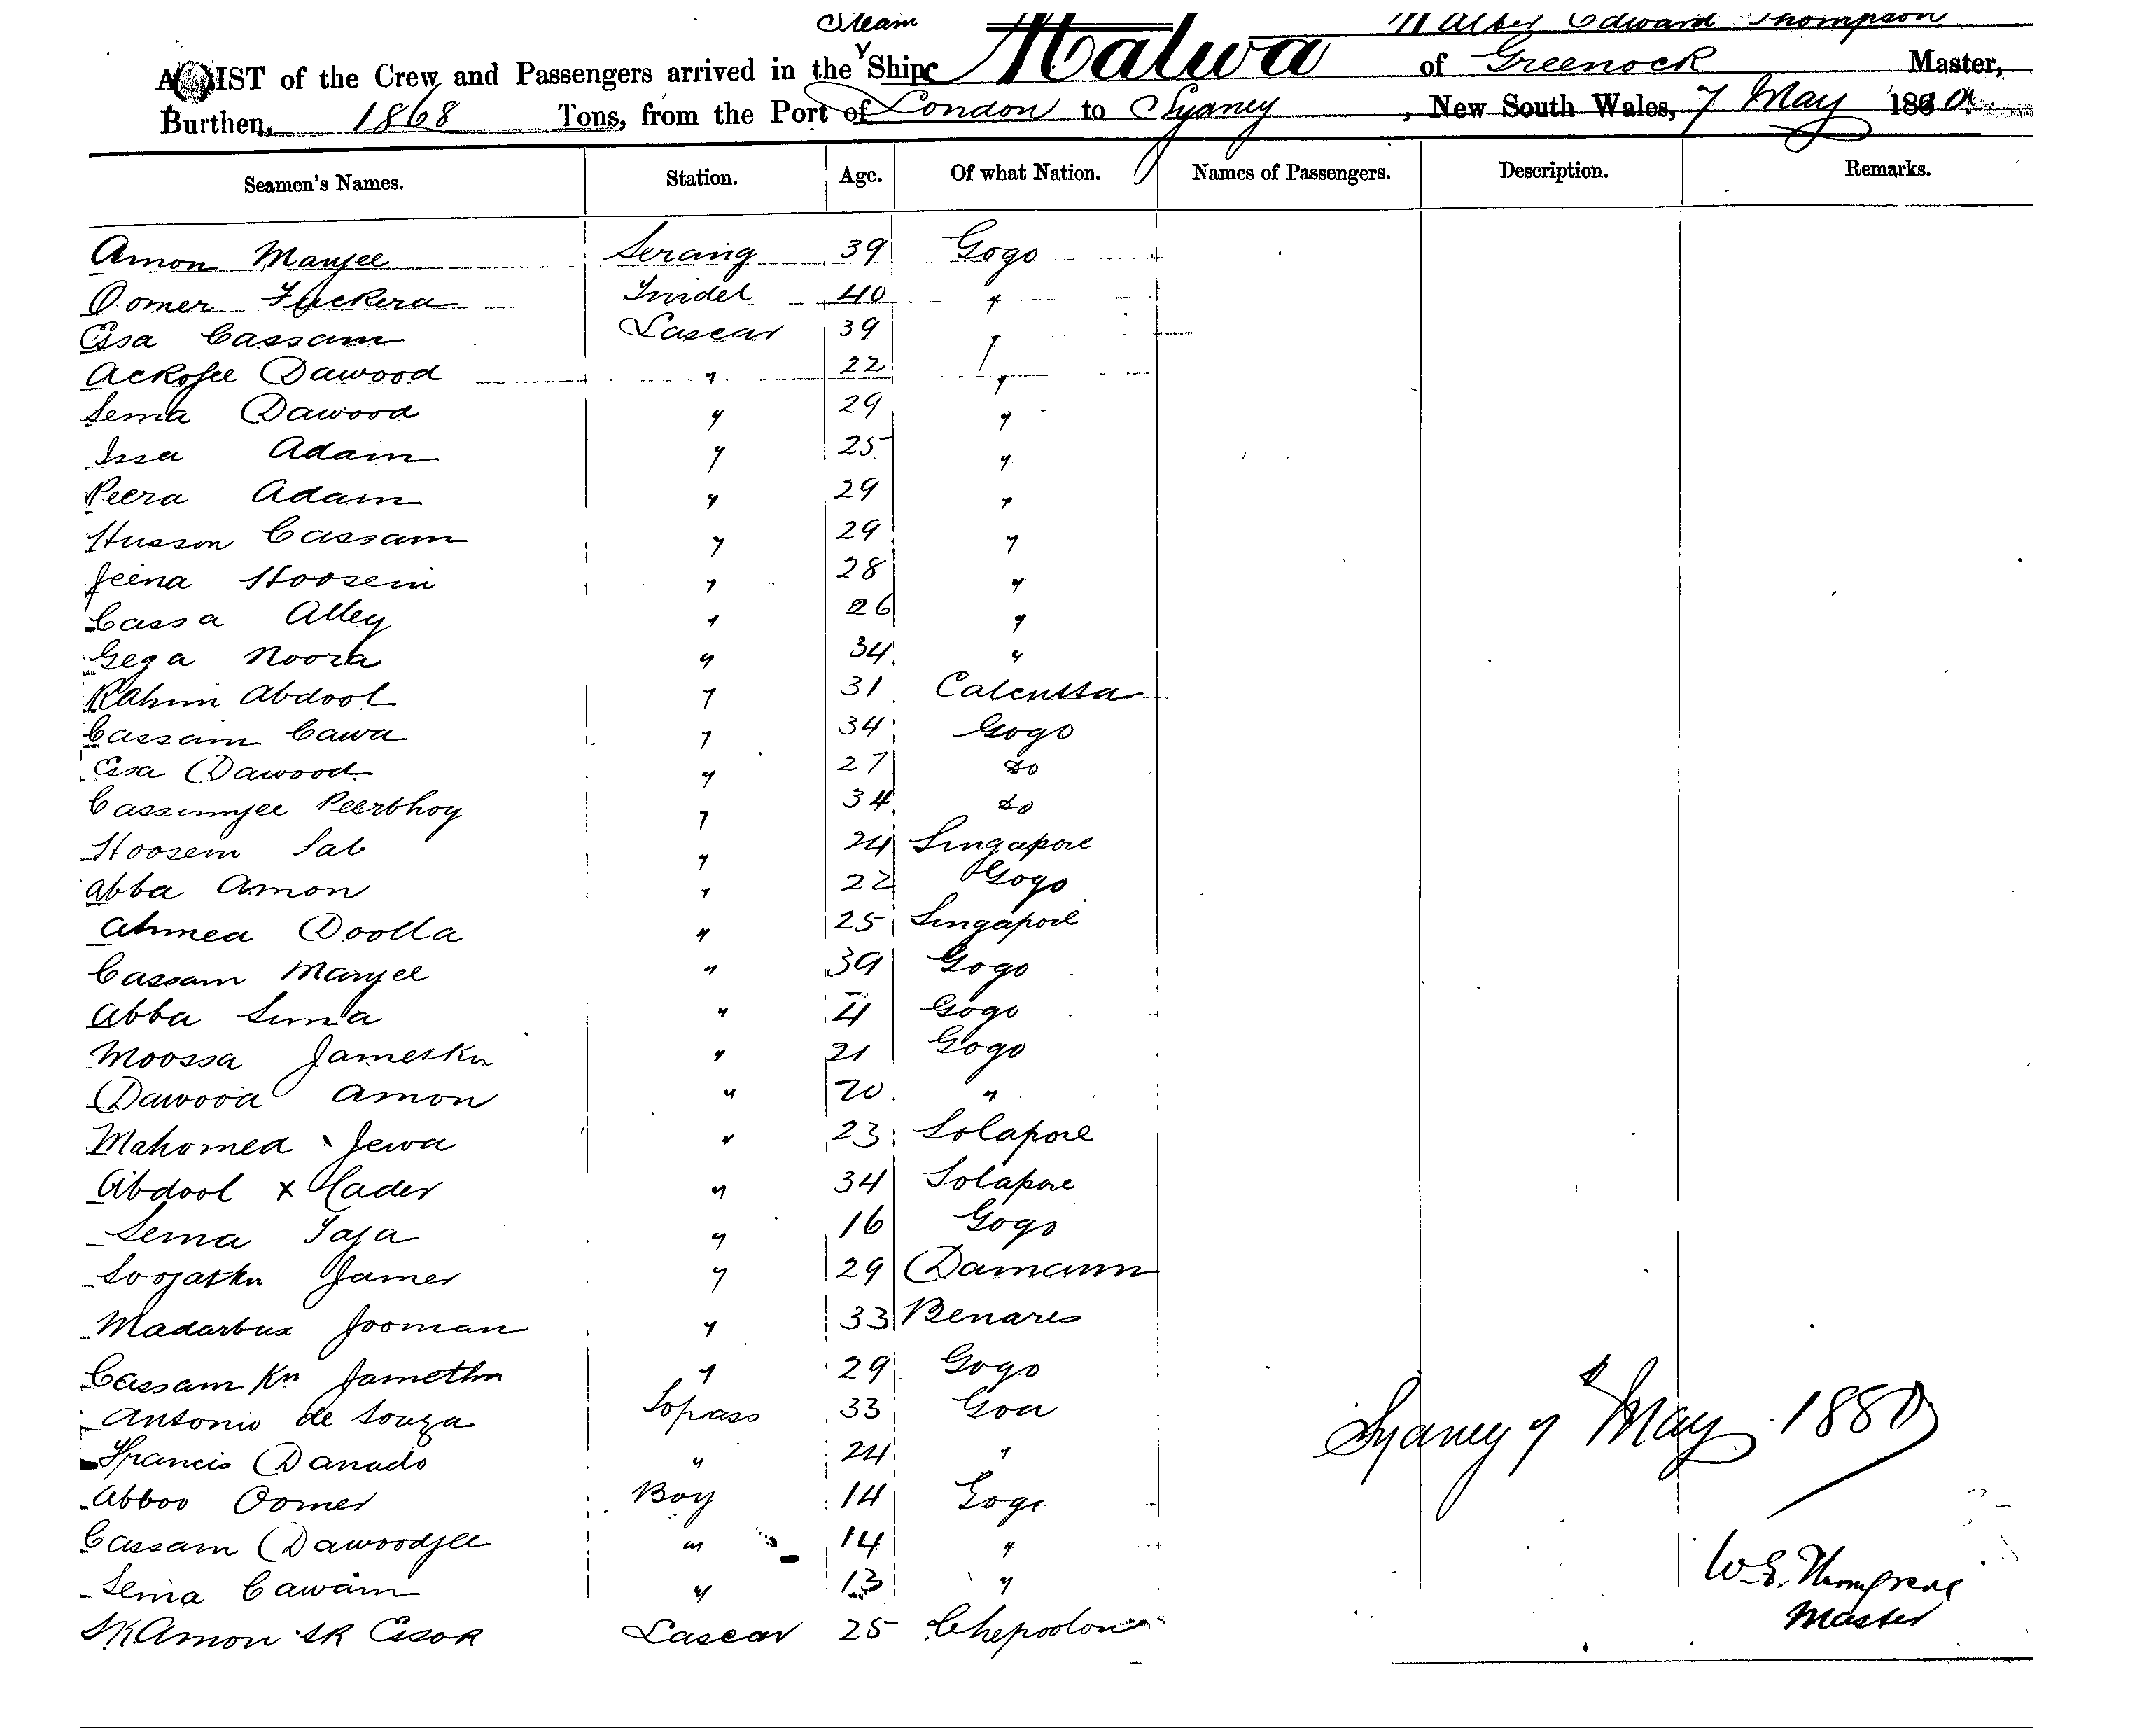 Steam
Walter Edward Thompson
A LIST of the Crew and Passengers arrived in the Ship Malwa of Greenock Master,
Burthen, 1868 Tons, from the Port of London to Sydney, New South Wales, 7 May 1880
Seamen's Names. Station. Age. Of what Nation. Names of Passengers. Description. Remarks.
Amon Manjee Serang 39 Gogo
Oomer Fuckera Tindel 40 "
Essa Cassam Lascar 39 "
Ackojee Dawood " 22 "
Sema Dawood " 29 "
Issa Adam " 25 "
Peera Adam " 29 "
Husson Cassam " 29 "
Jeena Hoosein " 28 "
Cassa Alley " 26 "
Gega Noora " 34 "
Rahim Abdool " 31 Calcutta
Cassam Cawa " 34 Gogo
Essa Dawood " 27 do
Cassumjee Peerbhoy " 34 do
Hoosem Sab " 24 Singapore
Abba Amon " 22 Gogo
Ahmed Doolla " 25 Singapore
Cassam Manjee " 39 Gogo
Abba Sema " Gogo
Moossa Jameskn " 21 Gogo
Dawood Amon " 20 "
Mahomed Jewa " 23 Solapore
Abdool x Cader " 34 Solapore
Sema Jaja " 16 Gogo
Jamer " 29 Damaun
Madarbux Jooman " 33 Benares
Cassam Kn " 29 Gogo
Antonio de Souza Topass 33 Goa
Francis Danado " 24 "
Abboo Oomer Boy 14 Gogo
Cassam Dawoodjee " 14 "
Sema Cawam " 13 "
SK Amon SK Essok Lascar 25
Sydney 7 May 1880
W. E. Thompson
Master